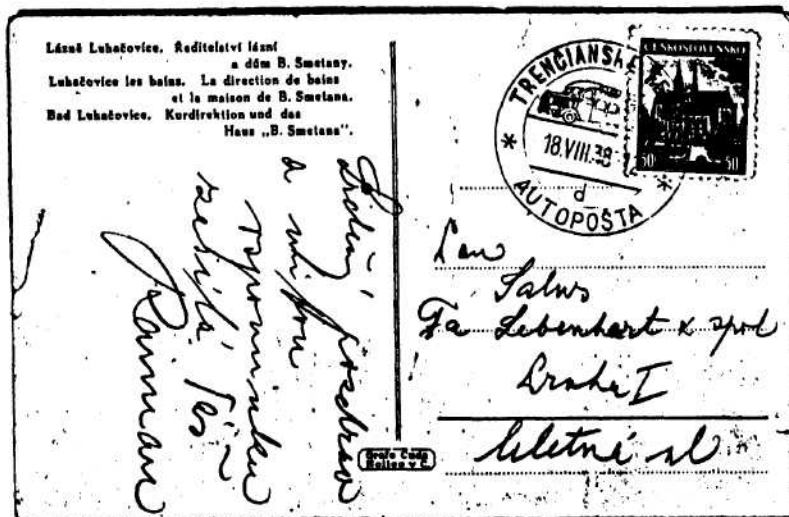 Lázně Luhačovice. Ředitelství lázní
a dům B. Smetany.
Luhačovice les bains. La direction de bains
et la maison de B. Smetana.
Bad Luhačovice. Kurdirektion und das
Haus „B. Smetana".
Srdečný pozdrav
a milou
vzpomínku
zasílá Váš
TRENČIANSKE
18.VIII.38
d
AUTOPOŠTA
ČESKOSLOVENSKO
50 50
Pan
Salus
Fa Lebenhart & spol
Praha I
Celetná ul
Grafo Čuda
Holice v Č.